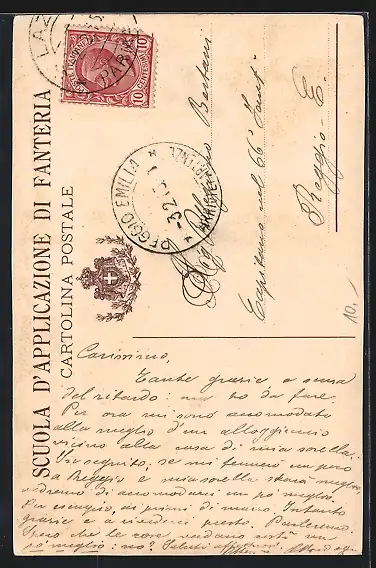 SCUOLA D'APPLICAZIONE DI FANTERIA
CARTOLINA POSTALE
PARMA
10
10
REGGIO EMILIA
ARRIVI E PARTENZE
Bertani
Capitano nel 66° Fant.
Reggio E.
10.-
Carissimo,
Tante grazie, e scusa
del ritardo: ma ho da fare.
Per ora mi sono accomodato
alla meglio d'un alloggiamento
vicino alla casa di mia sorella.
In seguito, se mi fermerò un pezzo
a Reggio e mia sorella starà meglio,
vedremo di accomodarci un po' meglio.
Per esempio, ai primi di marzo. Intanto
grazie e a vederci presto. Parleremo.
Spero che le cose vadano un
po' meglio: no? Saluti